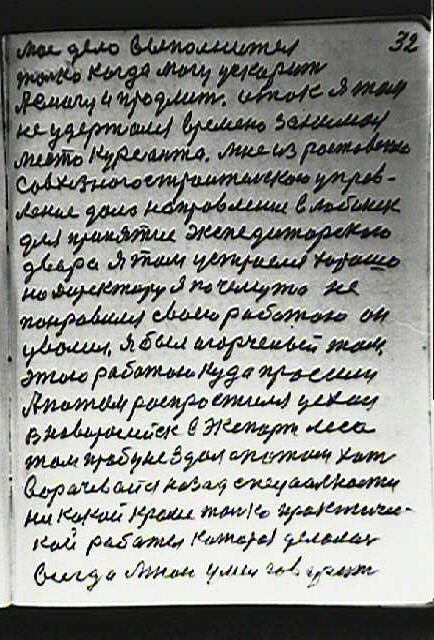 32
мое дело выполнител
только когда могу ускорит
А могу и продлит. итак я там
не удержался времено занимал
место курсанта. мне из ростовского
Совхозного строительного управ-
ление дало направление в Лабинск
для принятие Экспедиторского
двара я там устроился хорошо
но директору я почемуто не
понравился своею работою он
уволил, я был агорченый там,
этою работою куда
А потом распростился уехал
в новоросийск в Экспорт леса
там пробу не здал опотом хат
ворачевайся назад специалности
ни какой кроме толко практичес-
кой работы которая делалас
всегда Языком умел говорит